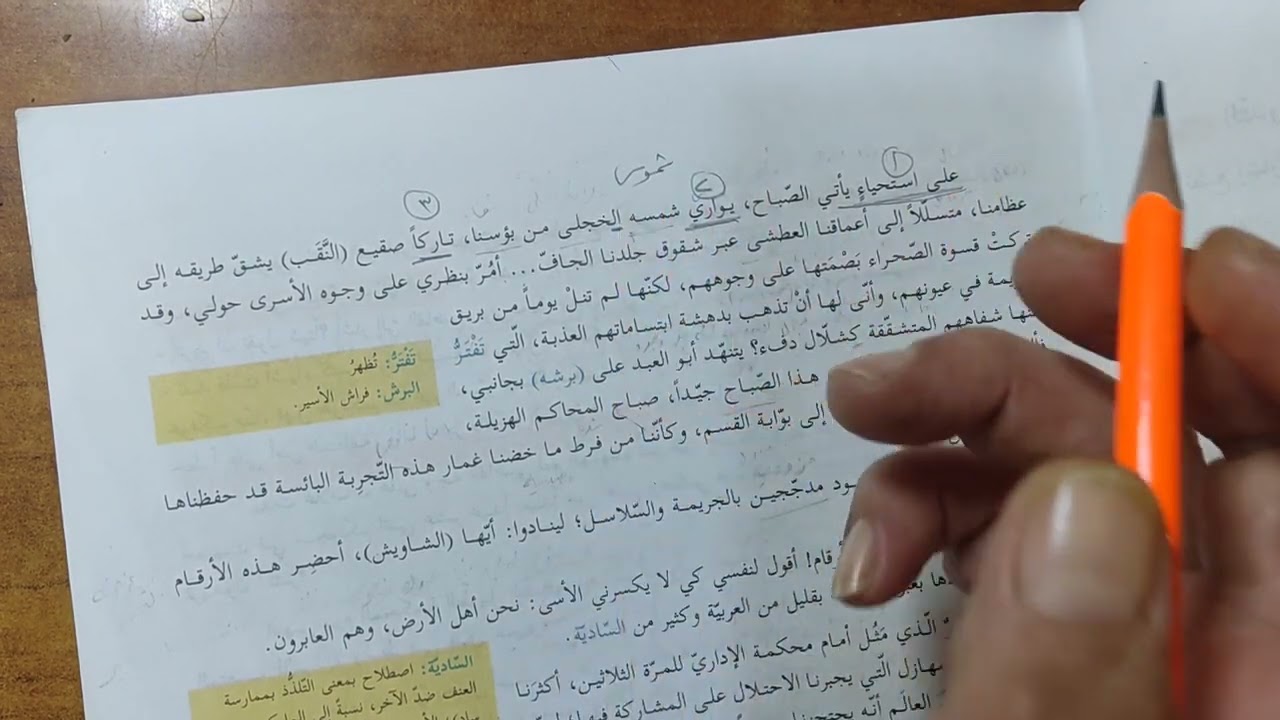 شموس
١ ٢ ٣
على استحياءٍ يأتي الصّباح، يواري شمسه الخجلى من بؤسنا، تاركاً صقيع (النَّقَب) يشقّ طريقه إلى
عظامنا، متسلّلاً إلى أعماقنا العطشى عبر شقوق جلدنا الجافّ... أمُرّ بنظري على وجوه الأسرى حولي، وقد
تركتْ قسوة الصّحراء بَصْمَتها على وجوههم، لكنّها لم تنلْ يوماً من بريق
في عيونهم، وأنّى لها أنْ تذهب بدهشة ابتساماتهم العذبة، الّتي تَفْتَرُّ
شفاههم المتشقّقة كشلّال دفء؟ يتنهّد أبو العبد على (برشه) بجانبي،
هذا الصّباح جيّداً، صباح المحاكم الهزيلة،
إلى بوّابة القسم، وكأنّنا من فرط ما خضنا غمار هذه التّجرِبة البائسة قد حفظناها
تَفْتَرُّ: تُظهرُ
البرش: فراش الأسير.
مدجّجين بالجريمة والسّلاسل؛ لينادوا: أيّها (الشاويش)، أحضِر هذه الأرقام
أقول لنفسي كي لا يكسرني الأسى: نحن أهل الأرض، وهم العابرون.
بقليل من العربيّة وكثير من السّاديّة.
الّذي مَثُل أمام محكمة الإداريّ للمرّة الثلاثين، أكثرَنا
الّتي يجبرنا الاحتلال على المشاركة فيها،
العالَم أنّه
السّاديّة: اصطلاح بمعنى التّلذُّذ بممارسة
العنف ضدّ الآخر، نسبةً إلى